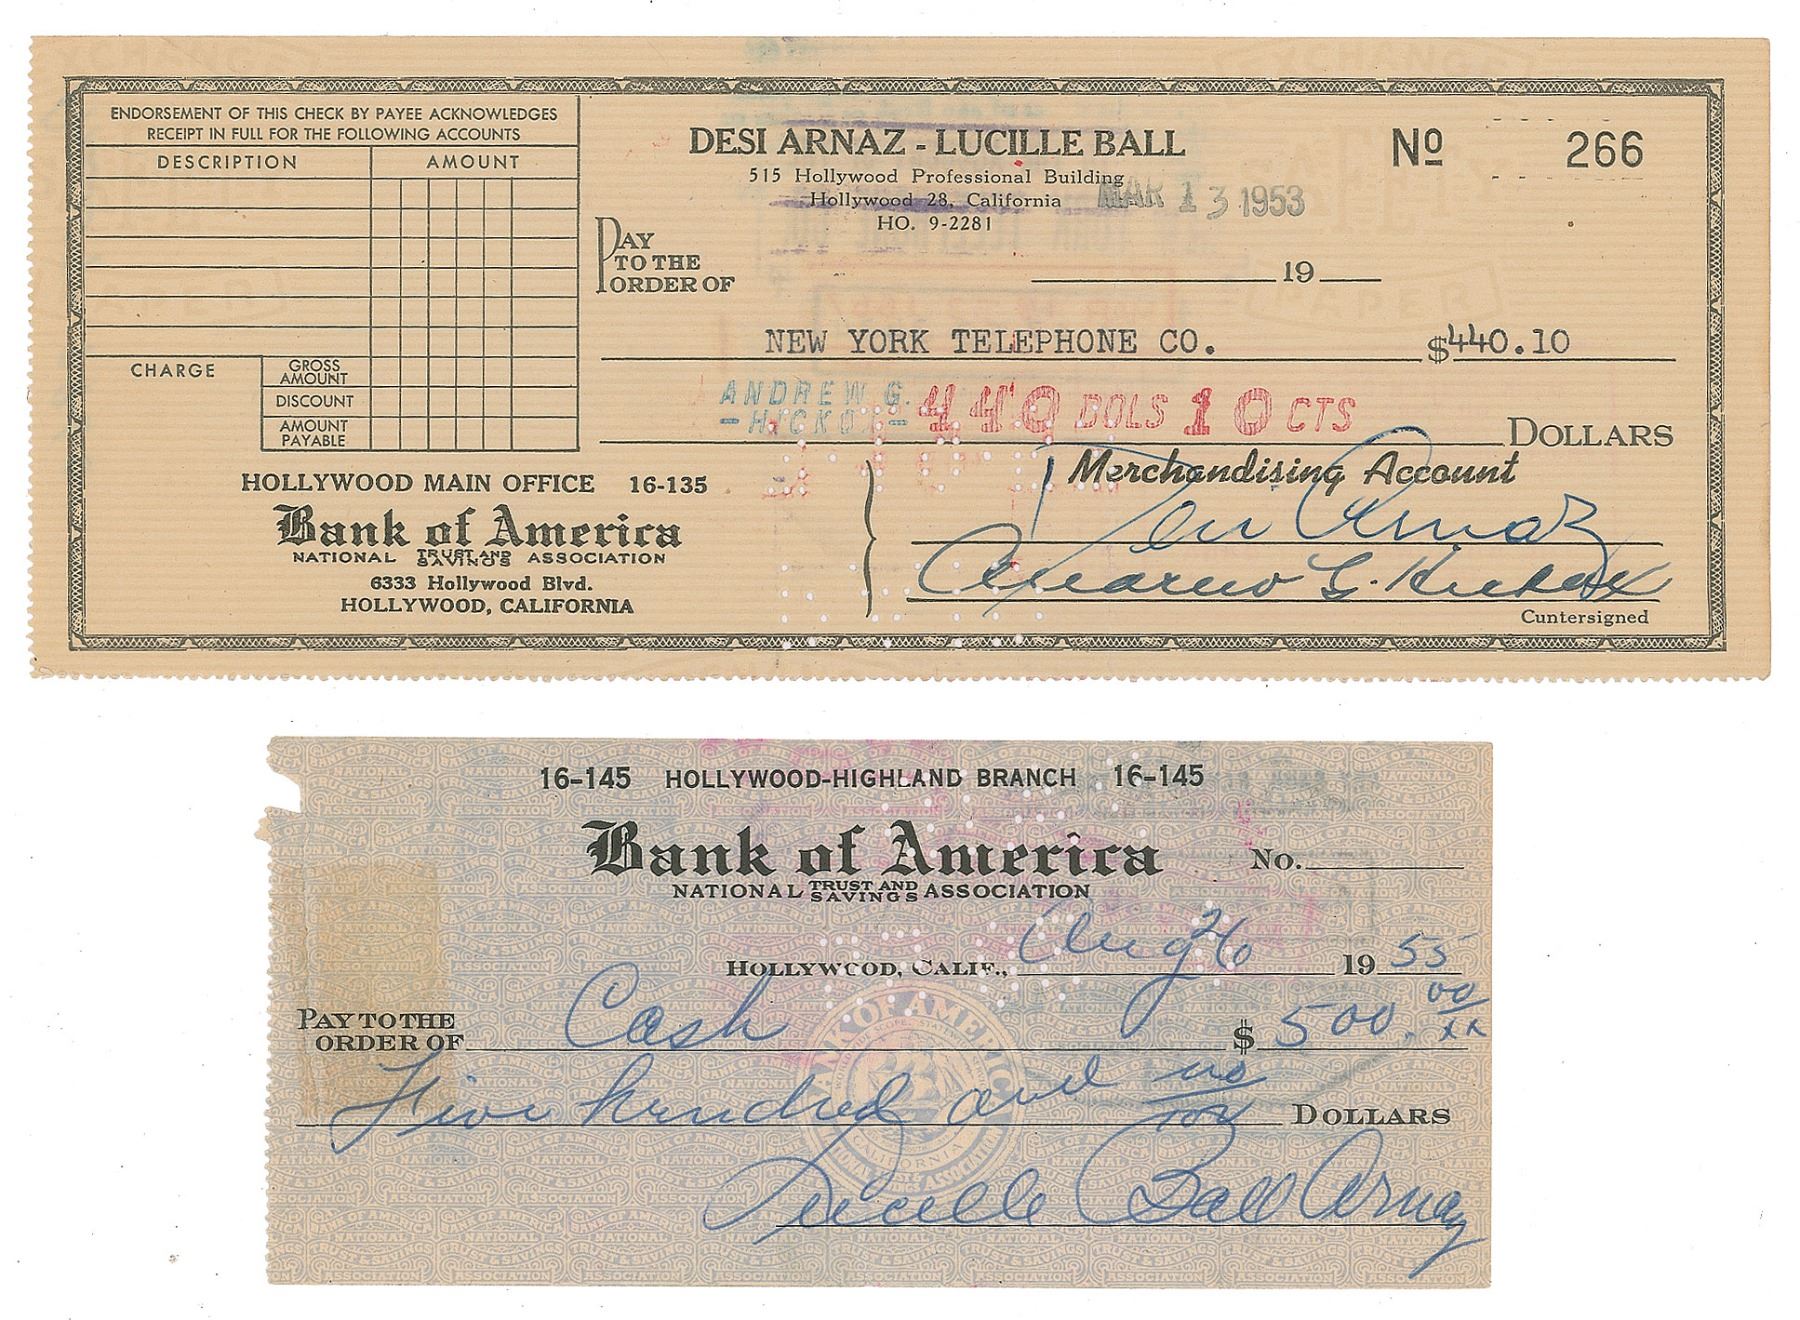 ENDORSEMENT OF THIS CHECK BY PAYEE ACKNOWLEDGES
RECEIPT IN FULL FOR THE FOLLOWING ACCOUNTS
DESCRIPTION AMOUNT
CHARGE
GROSS AMOUNT
DISCOUNT
AMOUNT PAYABLE
DESI ARNAZ - LUCILLE BALL
515 Hollywood Professional Building
Hollywood 28, California
HO. 9-2281
No 266
MAR 13 1953
PAY
TO THE
ORDER OF
19
NEW YORK TELEPHONE CO. $440.10
ANDREW G.
-HICKOX-
440 DOLS 10 CTS
DOLLARS
Merchandising Account
Desi Arnaz
Andrew G. Hickox
Cuntersigned
HOLLYWOOD MAIN OFFICE 16-135
Bank of America
NATIONAL TRUST AND SAVINGS ASSOCIATION
6333 Hollywood Blvd.
HOLLYWOOD, CALIFORNIA
16-145 HOLLYWOOD-HIGHLAND BRANCH 16-145
Bank of America
NATIONAL TRUST AND SAVINGS ASSOCIATION
No.
HOLLYWOOD, CALIF., Aug 26 19 55
PAY TO THE
ORDER OF Cash $ 500. 00/xx
Five hundred and no/100 DOLLARS
Lucille Ball Arnaz